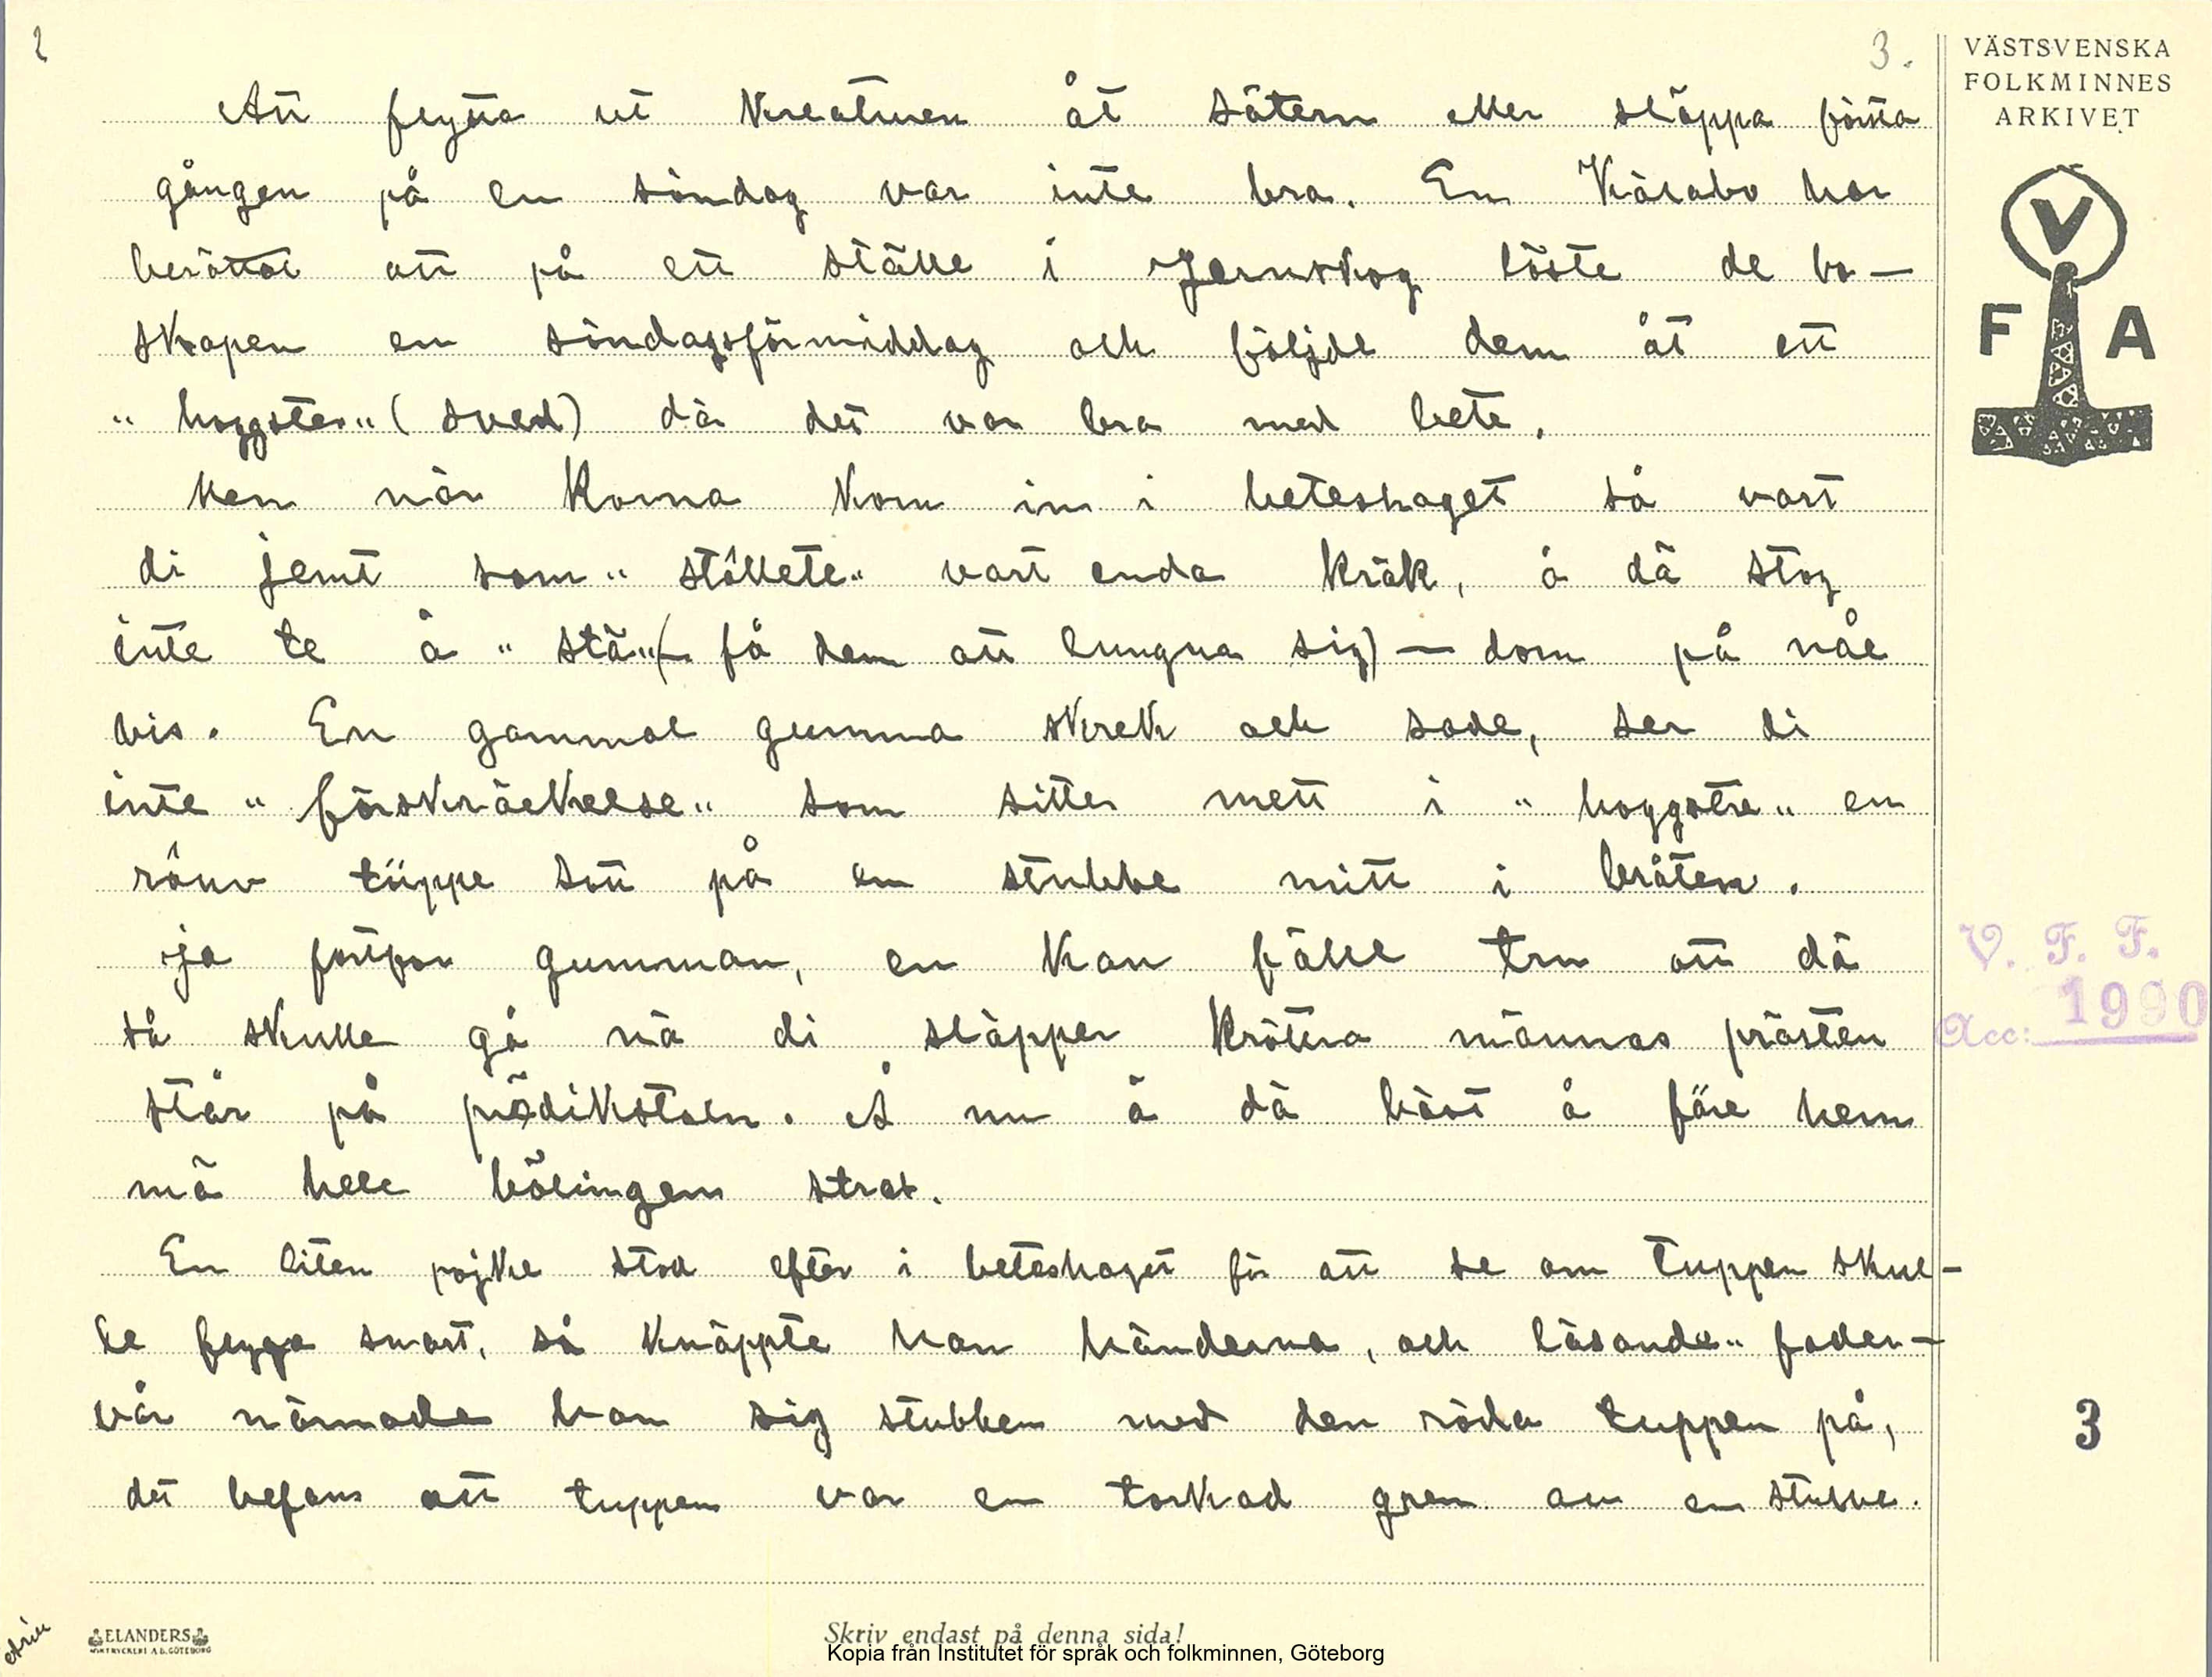 3.
VÄSTSVENSKA
FOLKMINNES
ARKIVET
V
F A
Att flytta ut kreaturen åt sätern eller släppa första
gången på en söndag var inte bra. En Kölabo har
berättat att på ett ställe i Jernskog löste de bo-
skapen en söndagsförmiddag och följde dem åt ett
"hoggster" (sved) där det var bra med bete.
Men när korna kom in i beteshaget så vart
di jemt som "stöllete" vart enda kräk, å dä stog
inte te å "stä" (få dem att lungna sig) — dom på nåe
vis. En gammal gumma skrek och sade, ser di
inte "förskräckelse" som sitter mett i "hoggstre" en
röuv tüppe sott på en stubbe mitt i bråten.
ja fortfor gumman, en kan fälle tru att dä
så skulle gå nä di släpper krötera männas prästen
står på prädikstoln. Å nu ä dä bäst å färe hem
mä hele bölingen strat.
En liten pojke stod efter i beteshaget för att se om tuppen skul-
le flyga snart, så knäppte han händerna, och läsande "fader-
vår närmade han sig stubben med den röda tuppen på,
det befans att tuppen var en torkad gren av en stubbe.
V. F. F.
Acc: 1990
3
ELANDERS
BOKTRYCKERI A.B. GÖTEBORG
Skriv endast på denna sida!
Kopia från Institutet för språk och folkminnen, Göteborg